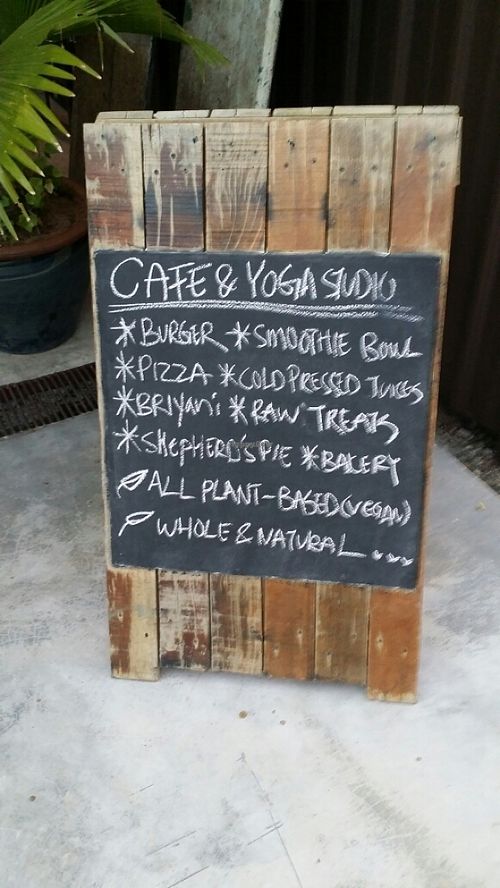 CAFE & YOGA STUDIO
*BURGER *SMOOTHIE BOWL
*PIZZA *COLD PRESSED JUICES
*BRIYANI *RAW TREATS
*SHEPHERD'S PIE *BAKERY
ALL PLANT-BASED (VEGAN)
WHOLE & NATURAL ....